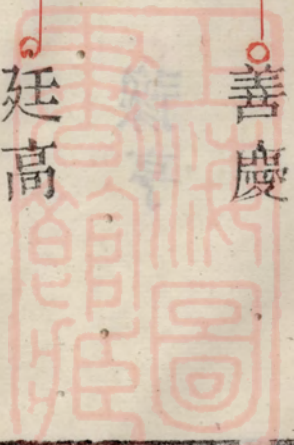 善慶
廷高
上海圖
書館藏